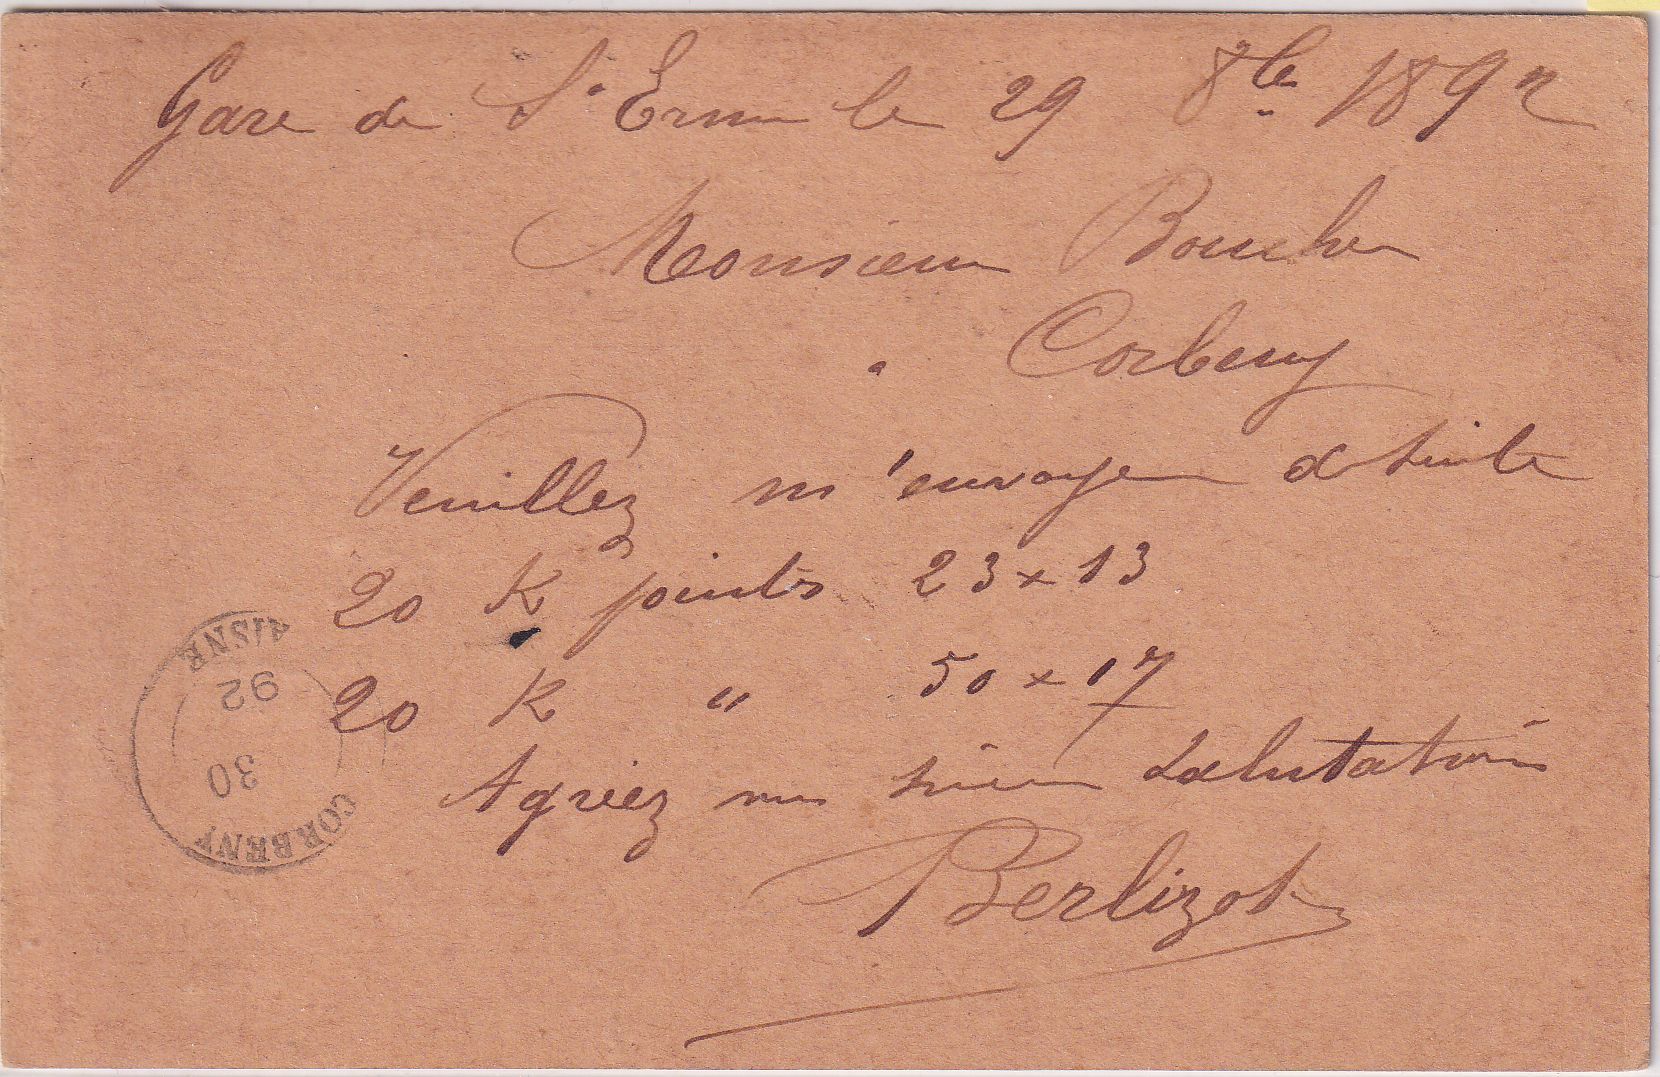 Gare de St Erme le 29 8bre 1892
Monsieur Boucher
Corbeny
Veuillez m'envoyer de suite
20 K points 23 x 13
20 K " 50 x 17
Agréez mes sincères salutations
Berlizot
CORBENY
30
92
AISNE